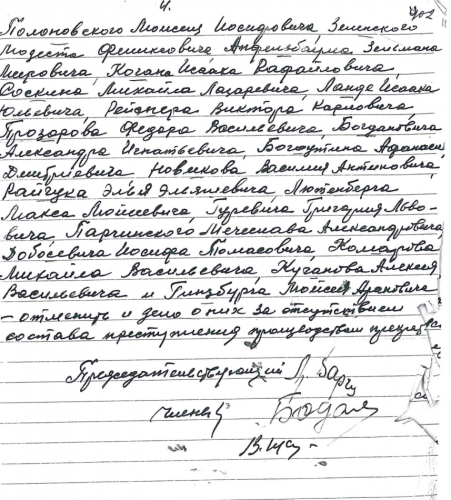 4.
402
Полоновского Моисея Иосифовича, Зеленского
Модеста Феликсовича, Апфельбаума Зельмана
Меровича, Когана Исаака Рафайловича,
Соскина Михайла Лазаревича, Ланде Исаака
Юльевича, Рейснера Виктора Карловича
Прозорова Федора Васильевича, Богдановича
Александра Игнатьевича, Богмутина Афанасия
Дмитриевича, Новикова Василия Антиповича,
Райчука Эльи Эльяшевича, Лютенберга
Макса Мойсевича, Гуревича Григория Льво-
вича, Парчинского Мечеслава Александровича
Добосевича Иосифа Томасовича, Комарова
Михайла Васильевича, Куганова Алексея
Васильевича и Гинзбурга Мойсея Ароновича
– отменить и дело о них за отсутствием
состава преступления производством прекратить
Председательствующий
Члены